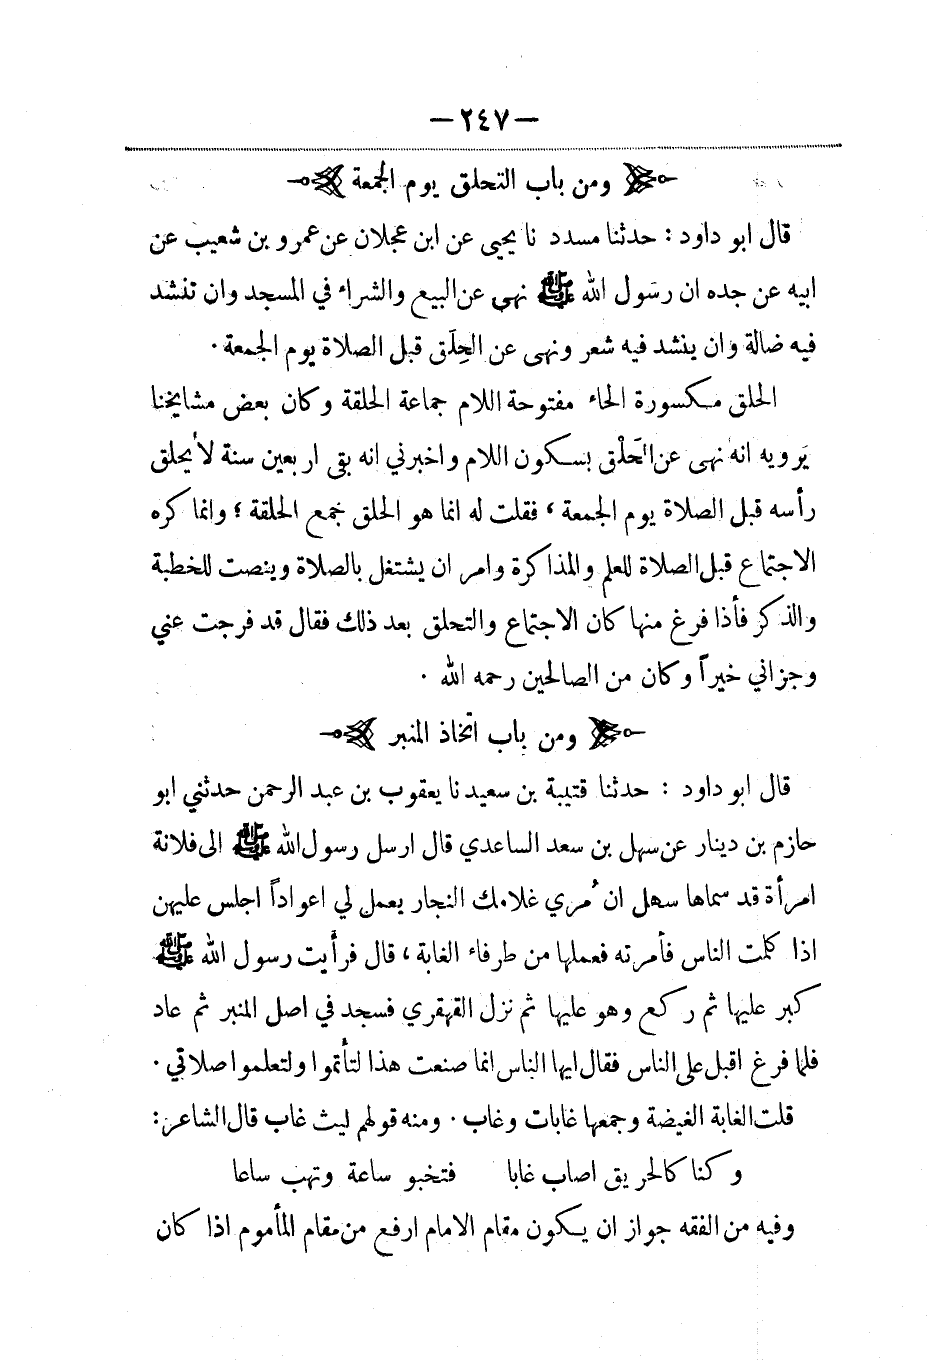 — ٢٤٧ —
ومن باب التحلق يوم الجمعة
قال ابو داود : حدثنا مسدد نا يحيى عن ابن عجلان عن عمرو بن شعيب عن
ابيه عن جده ان رسول الله ﷺ نهى عن البيع والشراء في المسجد وان تنشد
فيه ضالة وان ينشد فيه شعر ونهى عن الحِلَق قبل الصلاة يوم الجمعة .
الحلق مكسورة الحاء مفتوحة اللام جماعة الحلقة وكان بعض مشايخنا
يَرويه انه نهى عن الحَلْق بسكون اللام واخبرني انه بقى اربعين سنة لا يحلق
رأسه قبل الصلاة يوم الجمعة ، فقلت له انما هو الحلق جمع الحلقة ؛ وانما كره
الاجتماع قبل الصلاة للعلم والمذاكرة وامر ان يشتغل بالصلاة وينصت للخطبة
والذكر فأذا فرغ منها كان الاجتماع والتحلق بعد ذلك فقال قد فرجت عني
وجزاني خيراً وكان من الصالحين رحمه الله .
ومن باب اتخاذ المنبر
قال ابو داود : حدثنا قتيبة بن سعيد نا يعقوب بن عبد الرحمن حدثني ابو
حازم بن دينار عن سهل بن سعد الساعدي قال ارسل رسول الله ﷺ الى فلانة
امرأة قد سماها سهل ان مُري غلامك النجار يعمل لي اعواداً اجلس عليهن
اذا كلمت الناس فأمرته فعملها من طرفاء الغابة ، قال فرأيت رسول الله ﷺ
كبر عليها ثم ركع وهو عليها ثم نزل القهقري فسجد في اصل المنبر ثم عاد
فلما فرغ اقبل على الناس فقال ايها الناس انما صنعت هذا لتأتموا ولتعلموا صلاتي .
قلت الغابة الغيضة وجمعها غابات وغاب . ومنه قولهم ليث غاب قال الشاعر :
وكنا كالحريق اصاب غابا فتخبو ساعة وتهب ساعا
وفيه من الفقه جواز ان يكون مقام الامام ارفع من مقام المأموم اذا كان